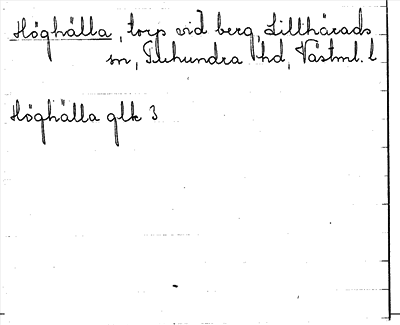 Höghälla, torp vid berg, Lillhärads
sn, Tuhundra hd, Västml. l
Höghälla glk 3